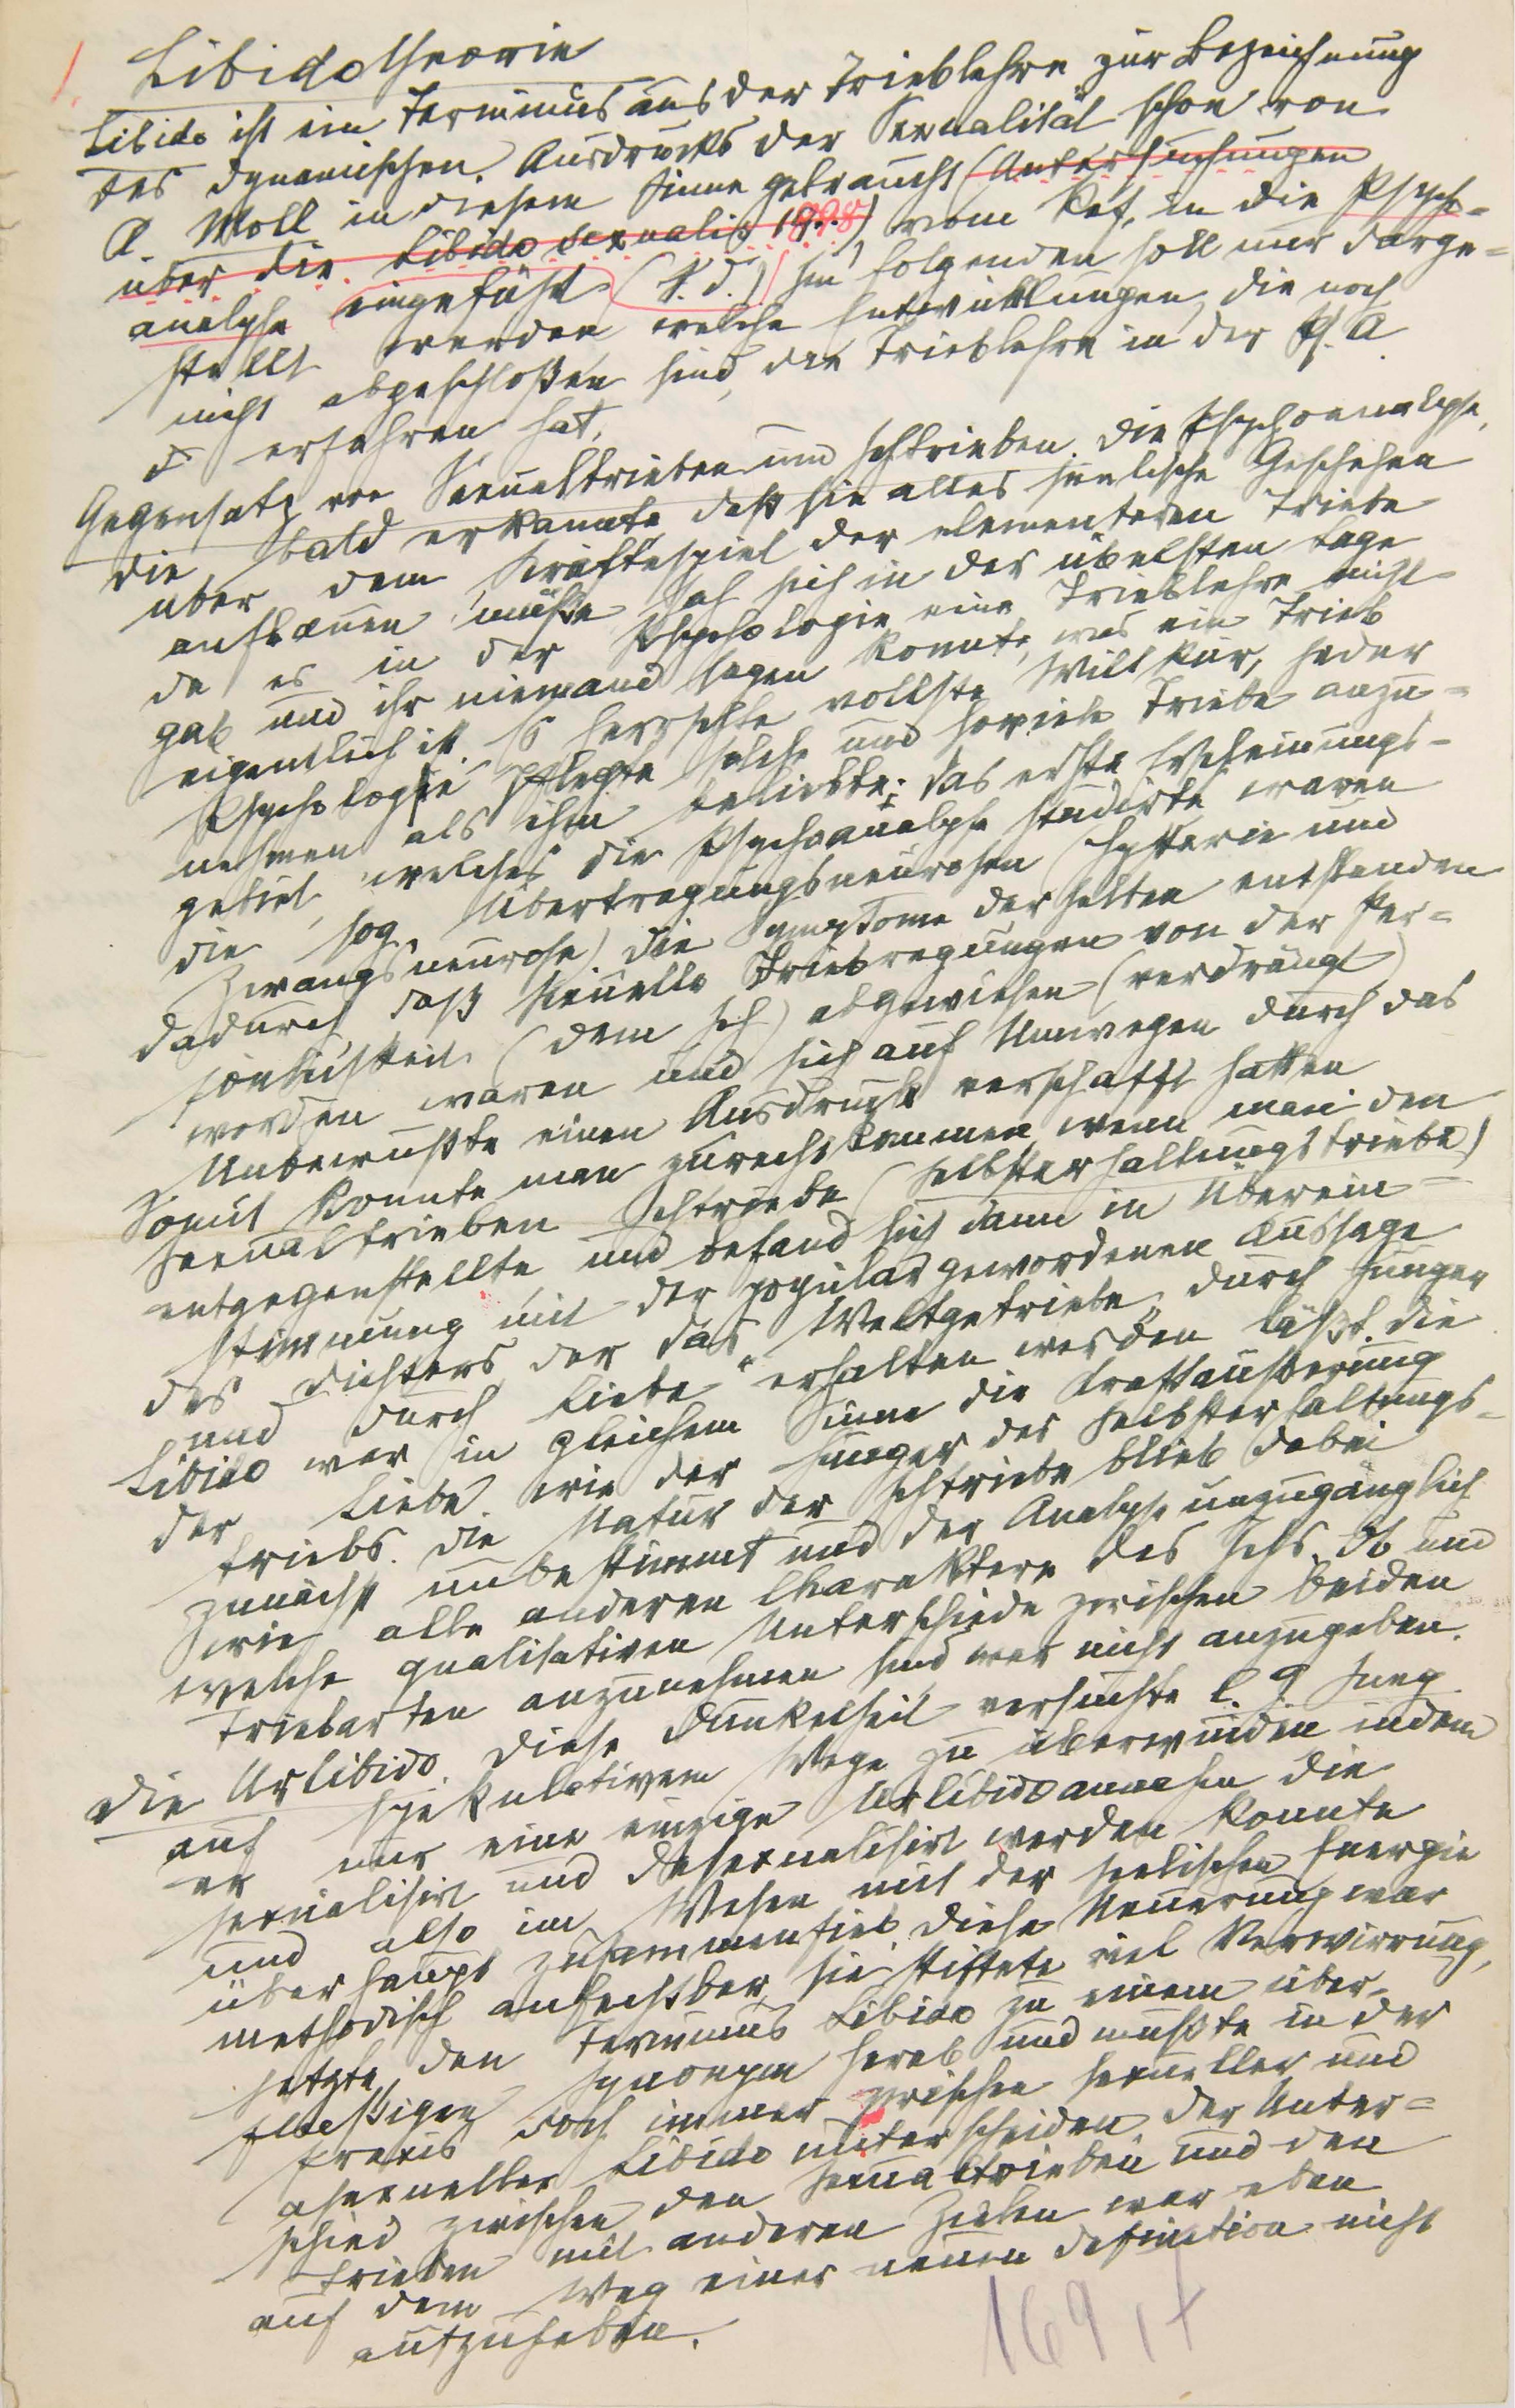 Libidotheorie
Libido ist ein Terminus aus der Trieblehre zur Bezeichnung
des dynamischen Ausdrucks der Sexualität schon von
A. Moll in diesem Sinne gebraucht (Untersuchungen
über die Libido sexualis 1898) vom Ref. in die Psycho=
analyse eingeführt (s. d.) Im folgenden soll nur darge=
stellt werden welche Entwicklungen, die noch
nicht abgeschloßen sind, die Trieblehre in der Ps.A
erfahren hat.
Gegensatz von Sexualtrieben und Ichtrieben. Die Psychoanalyse,
die bald erkannte daß sie alles seelische Geschehen
über dem Kräftespiel der elementaren Triebe
aufbauen müße sah sich in der übelsten Lage
da es in der Psychologie eine Trieblehre nicht
gab und ihr niemand sagen konnte, was ein Trieb
eigentlich ist. Es herrschte vollste Willkür, jeder
Psychologe pflegte solche und soviele Triebe anzu=
nehmen als ihm beliebte. Das erste Erscheinungs-
gebiet, welches die Psychoanalyse studirte waren
die sog. Übertragungsneurosen (Hysterie und
Zwangsneurose) Die Symptome derselben entstanden
dadurch daß sexuelle Triebregungen von der Per=
sönlichkeit (dem Ich) abgewiesen (verdrängt)
worden waren und sich auf Umwegen durch das
Unbewußte einen Ausdruck verschafft hatten
Somit konnte man zurechtkommen, wenn man den
Sexualtrieben Ichtriebe (Selbsterhaltungstriebe)
entgegenstellte und befand sich dann in Überein=
stimmung mit der populär gewordenen Aussage
des Dichters der das Weltgetriebe „durch Hunger
und durch Liebe“ erhalten werden läßt. Die
Libido war in gleichem Sinne die Kraftäußerung
der Liebe wie der Hunger des Selbsterhaltungs-
triebs. Die Natur der Ichtriebe blieb dabei
zunächst unbestimmt und der Analyse unzugänglich
wie alle anderen Charaktere des Ichs. Ob und
welche qualitativen Unterschiede zwischen beiden
Triebarten anzunehmen sind war nicht anzugeben.
Die Urlibido. Diese Dunkelheit versuchte C. G. Jung
auf spekulativem Wege zu überwinden indem
er nur eine einzige Urlibido annahm die
sexualisirt und desexualisirt werden konnte
und also im Wesen mit der seelischen Energie
überhaupt zusammenfiel. Diese Neuerung war
methodisch anfechtbar, sie stiftete viel Verwirrung,
setzte den Terminus Libido zu einem über-
flueßigen Synonym herab und mußte in der
Praxis doch immer zwischen sexueller und
asexueller Libido unterscheiden. Der Unter=
schied zwischen den Sexualtrieben und den
Trieben mit anderen Zielen war eben
auf dem Weg einer neuen Definition nicht
aufzuheben.